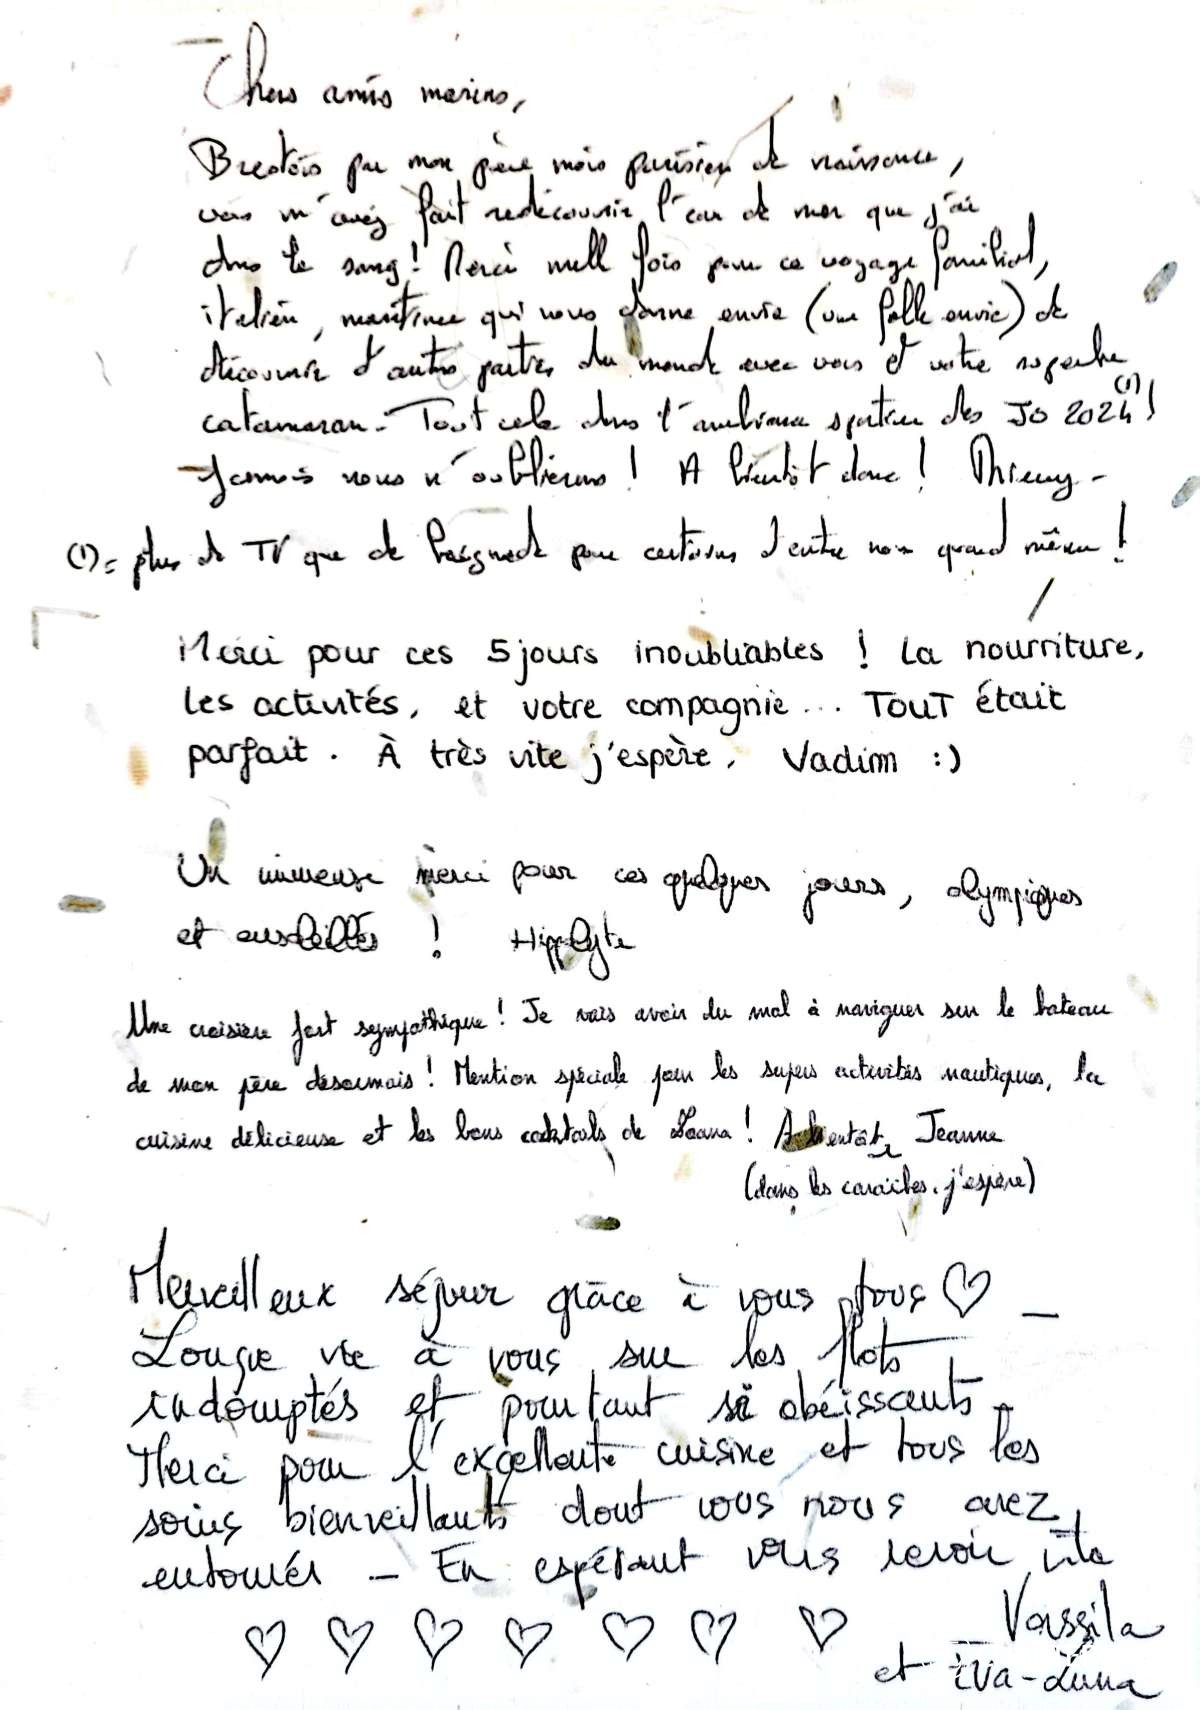 Chers amis marins,
Brestois par mon père mais parisien de naissance,
vous m'avez fait redécouvrir l'eau de mer que j'ai
dans le sang ! Merci mille fois pour ce voyage familial,
italien, maritime qui nous donne envie (une folle envie) de
découvrir d'autres parties du monde avec vous et votre superbe
catamaran - Tout cela dans l'ambiance sportive des JO 2024 (1) !
Jamais nous n'oublierons ! A bientôt donc ! Thierry -
(1) = plus de TV que de baignade pour certains d'entre nous quand même !
Merci pour ces 5 jours inoubliables ! La nourriture,
les activités, et votre compagnie ... TOUT était
parfait. À très vite j'espère, Vadim :)
Un immense merci pour ces quelques jours, olympiques
et ensoleillés ! Hippolyte
Une croisière fort sympathique ! Je vais avoir du mal à naviguer sur le bateau
de mon père désormais ! Mention spéciale pour les supers activités nautiques, la
cuisine délicieuse et les bons cocktails de ! A bientôt, Jeanne
(dans les caraïbes, j'espère)
Merveilleux séjour grâce à vous tous ♡ _
Longue vie à vous sur les flots
indomptés et pourtant si obéissants -
Merci pour l'excellente cuisine et tous les
soins bienveillants dont vous nous avez
entourés - En espérant vous revoir vite
♡ ♡ ♡ ♡ ♡ ♡ ♡ Vassila
et Eva-Luna